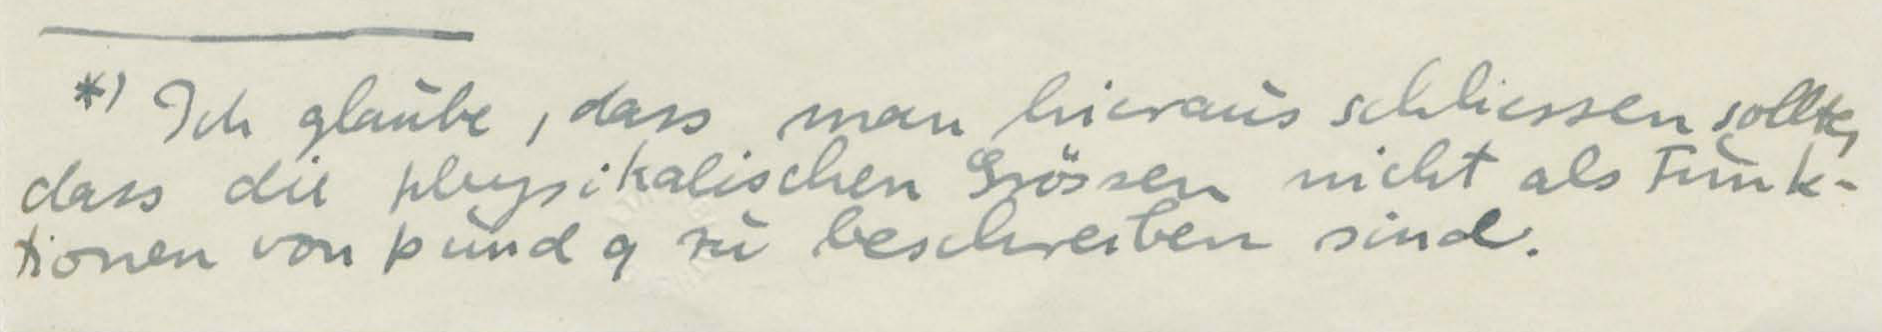 *) Ich glaube, dass man hieraus schliessen sollte,
dass die physikalischen Grössen nicht als Funk-
tionen von p und q zu beschreiben sind.